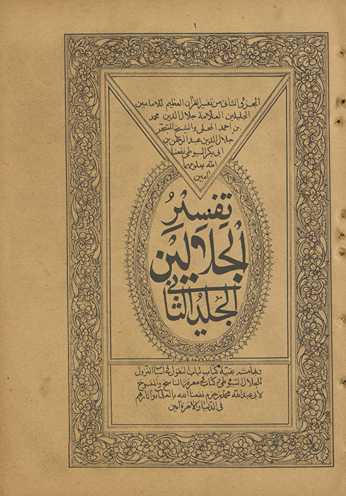 ١
الجزء الثاني من تفسير القرآن العظيم للامامين
الجليلين العلامة جلال الدين محمد
بن احمد المحلي والشيخ المتبحر
جلال الدين عبد الرحمن بن
ابي بكر السيوطي نفعنا
الله بعلومهما
آمين
تفسير
الجلالين
الجلد الثاني
وبهامشه بقية كتاب لباب النقول في اسباب النزول
للجلال السيوطي كتاب في معرفة الناسخ والمنسوخ
لابي عبد الله محمد بن حزم نفعنا الله
في الدنيا والآخرة آمين